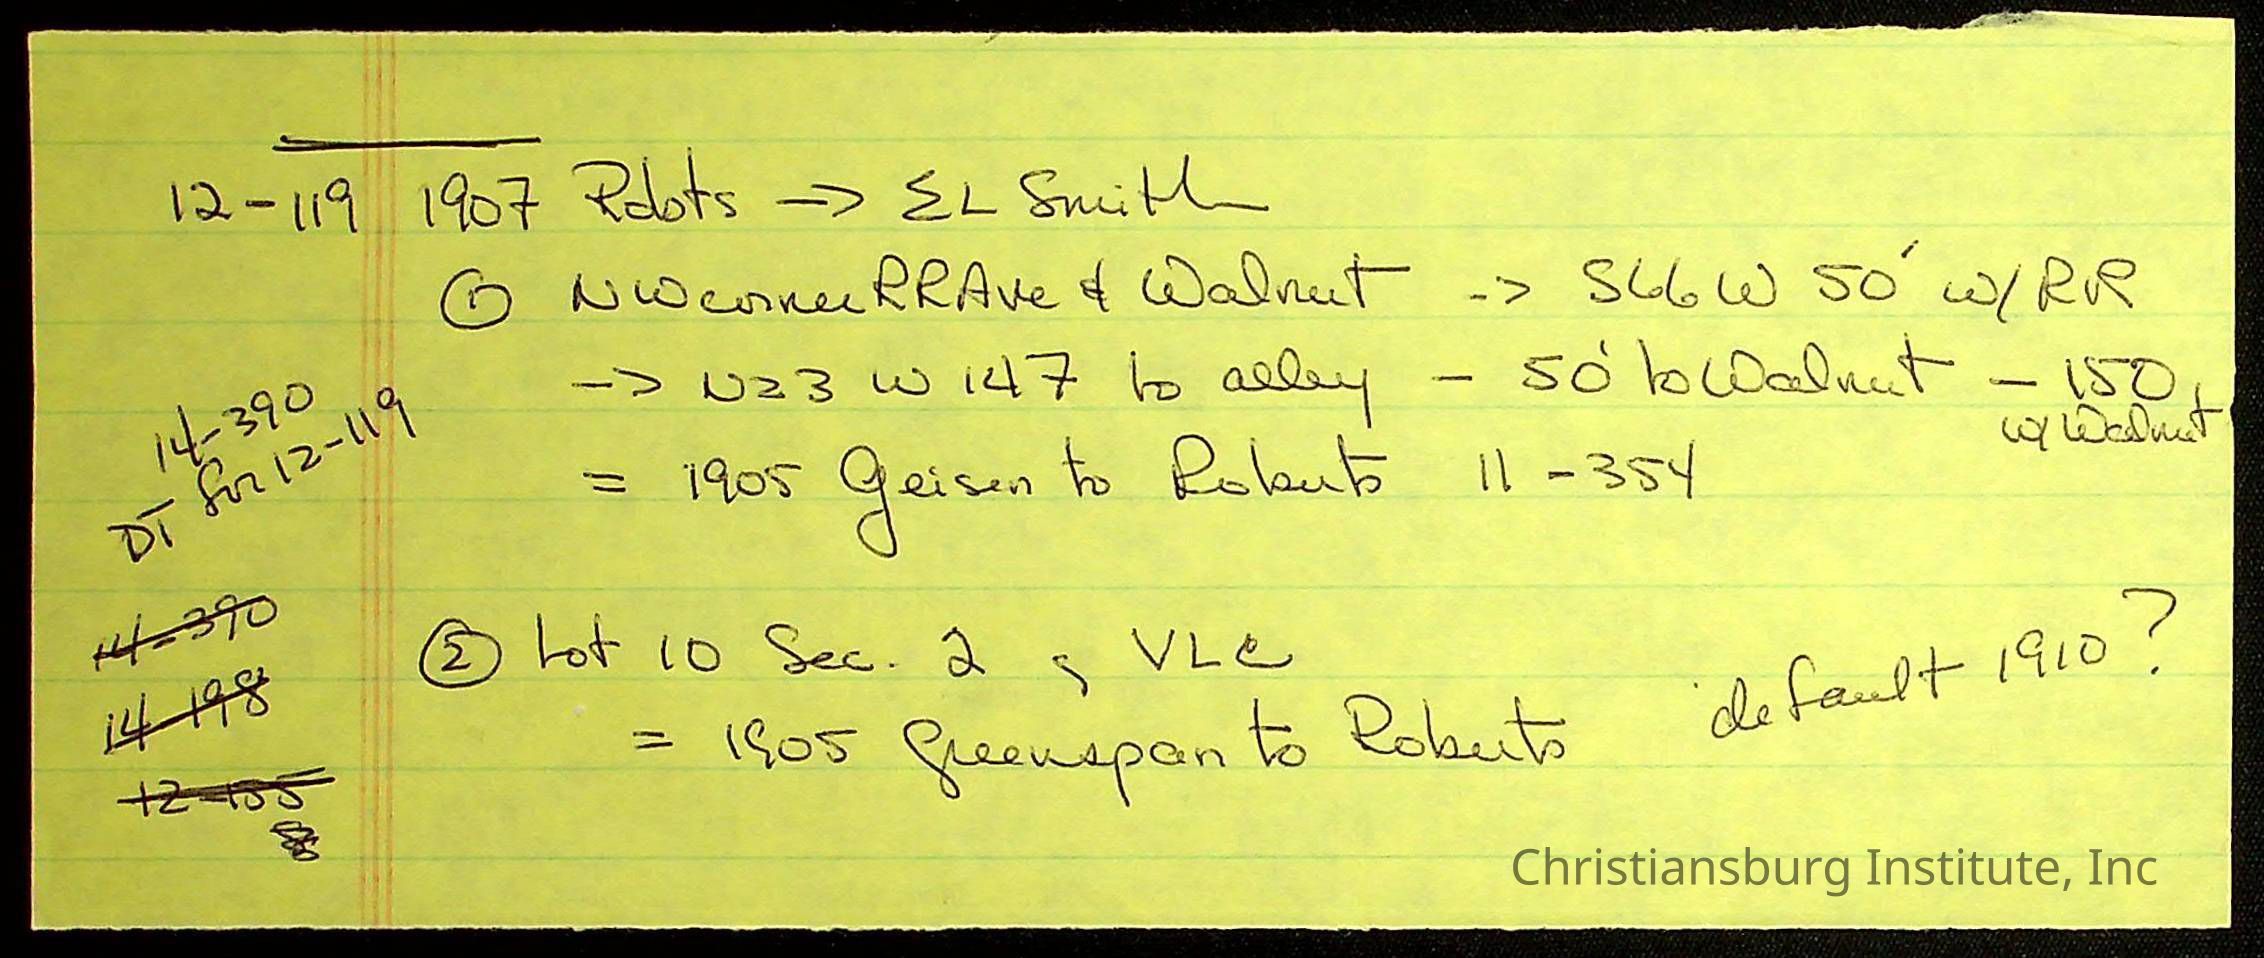 12-119 1907 Rbts -> EL Smith
① NW corner RR Ave & Walnut -> S66W 50' w/ RR
-> N23W 147 to alley - 50' to Walnut - 150
w/ Walnut
= 1905 Geisen to Roberts 11-354
14-390
DT for 12-119
14-390
14-198
12-155
② Lot 10 Sec. 2, VLC
= 1905 Greenspan to Roberts
default 1910?
Christiansburg Institute, Inc